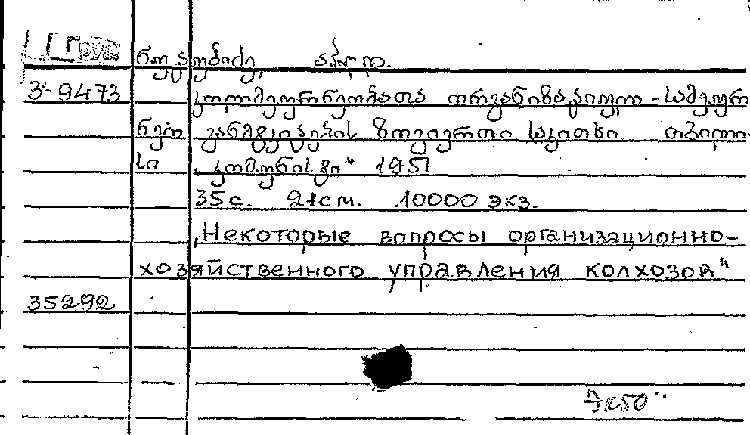 3-9473
კოლმეურნეობათა ორგანიზაციულ-სამეურ
ნეო განმტკიცების ზოგიერთი საკითხი თბილი
სი „კომუნისტი“ 1951
35 с. 21 см. 10000 экз.
„Некоторые вопросы организационно-
хозяйственного управления колхозов"
35292